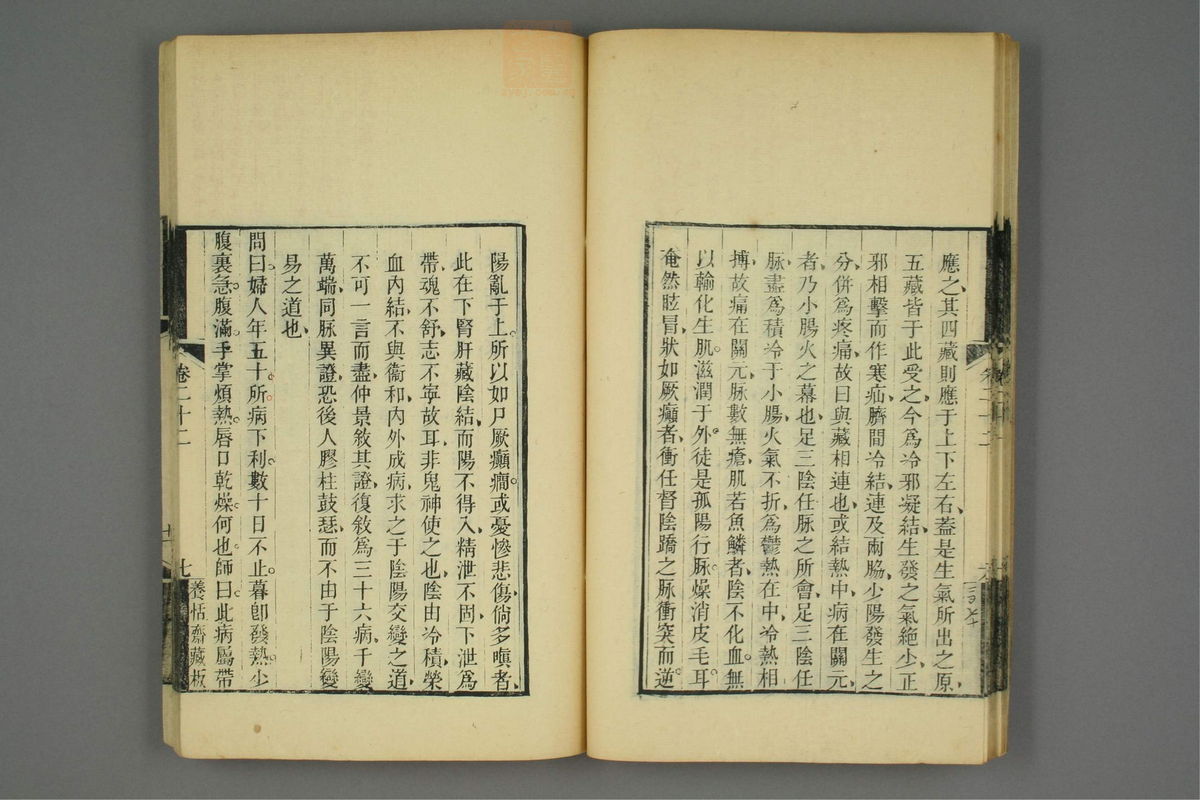 應之其四藏則應于上下左右蓋是生氣所出之原
五藏皆于此受之今爲冷邪凝結生發之氣絕少正
邪相擊而作寒疝臍間冷結連及兩脇少陽發生之
分併爲疼痛故曰與藏相連也或結熱中病在關元
者乃小腸火之幕也足三陰任脉之所會足三陰任
脉盡爲積冷于小腸火氣不折爲鬱熱在中冷熱相
搏故痛在關元脉數無瘡肌若魚鱗者陰不化血無
以輸化生肌滋潤于外徒是孤陽行脉燥消皮毛耳
奄然眩冒狀如厥癲者衝任督陰蹻之脉衝突而逆
陽亂于上所以如尸厥癲癎或憂慘悲傷倘多嗔者
此在下腎肝藏陰結而陽不得入精泄不固下泄爲
帶魂不舒志不寧故耳非鬼神使之也陰由冷積榮
血內結不與衞和內外成病求之于陰陽交變之道
不可一言而盡仲景敘其證復敘爲三十六病千變
萬端同脉異證恐後人膠柱鼓瑟而不由于陰陽變
易之道也
問曰婦人年五十所病下利數十日不止暮卽發熱少
腹裏急腹滿手掌煩熱唇口乾燥何也師曰此病屬帶
卷二十二
七
養恬齋藏板